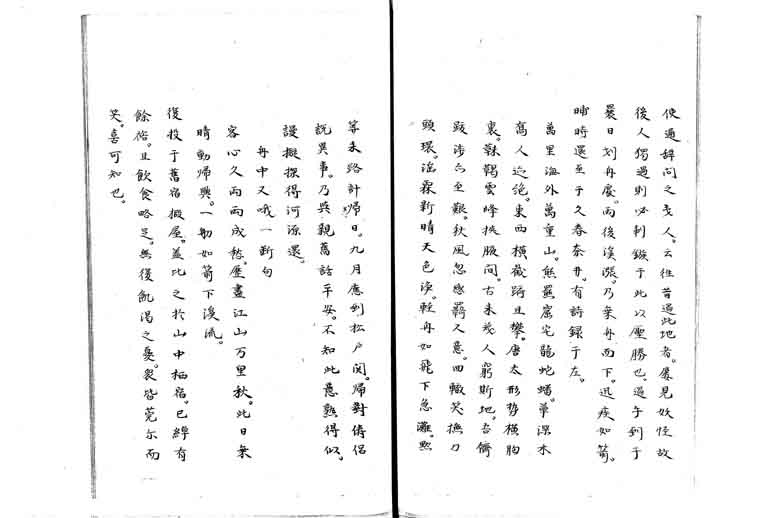 使通辞問之夷人。云往昔過此地者。屡見妖怪故
後人獨過則必刺鏃于此以壓勝也。過午到于
曩日刻舟處。雨後渓漲。乃乗舟而下。迅疾如箭。
晡時還至于久春奈井。有詩録于左。
萬里海外萬重山。熊羆窟宅龍蛇蟠。草深木
高人迹絶。東西横截躋且攀。唐太形勢横胸
裏。靺鞨雲峰挾腋間。古来幾人窮斯地。吾儕
跋渉亦至艱。秋風忽感羇人意。四顧笑撫刀
頭環。淫霖新晴天色淡。軽舟如飛下急灘。黙
算来路計帰日。九月應到松戸関。帰對儔侶
説異事。乃與親舊話平安。不知此意孰得似。
謾擬探得河源還。
舟中又哦一断句
客心久雨雨成愁。歴盡江山万里秋。此日乗
晴動帰興。一舠如箭下渓流。
復投于舊宿搬屋。蓋此之於山中栖宿。已綽有
餘裕。且飲食略足。無復飢渇之憂。衆皆莞尔而
笑。喜可知也。